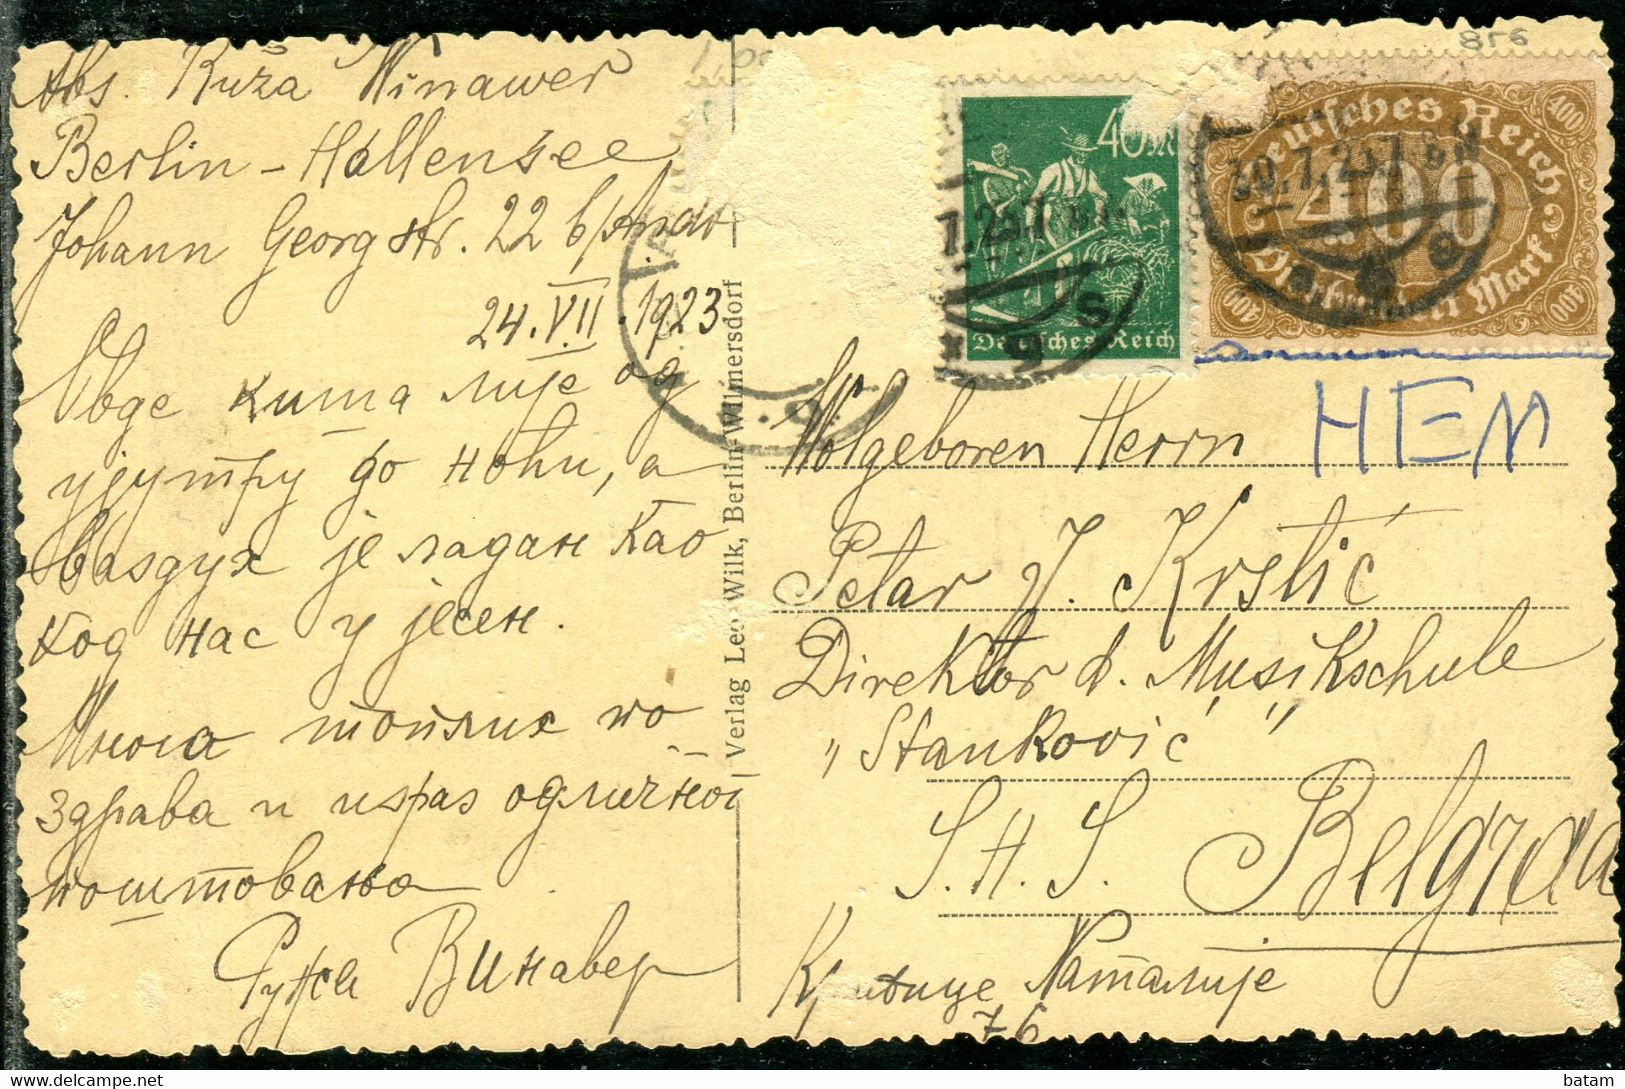 Abs. Ruža Winawer
Berlin-Hallensee
Johann Georg str. 22 b/
24.VII.1923
Овде киша лије од
ујутру до ноћи, а
ваздух је ладан као
код нас у јесен.
Много топлих по
здрава и израз одличног
поштовања
Ружа Винавер
Verlag Leo Wilk, Berlin-Wilmersdorf
856
40 M
Deutsches Reich
Deutsches Reich
400
400
400
400
Vierhundert Mark
HEM
Wolgeboren Herrn
Petar J. Krstić
Direktor d. Musikschule
„Stanković"
S.H.S. Belgrad
Краљице Наталије
76
batam